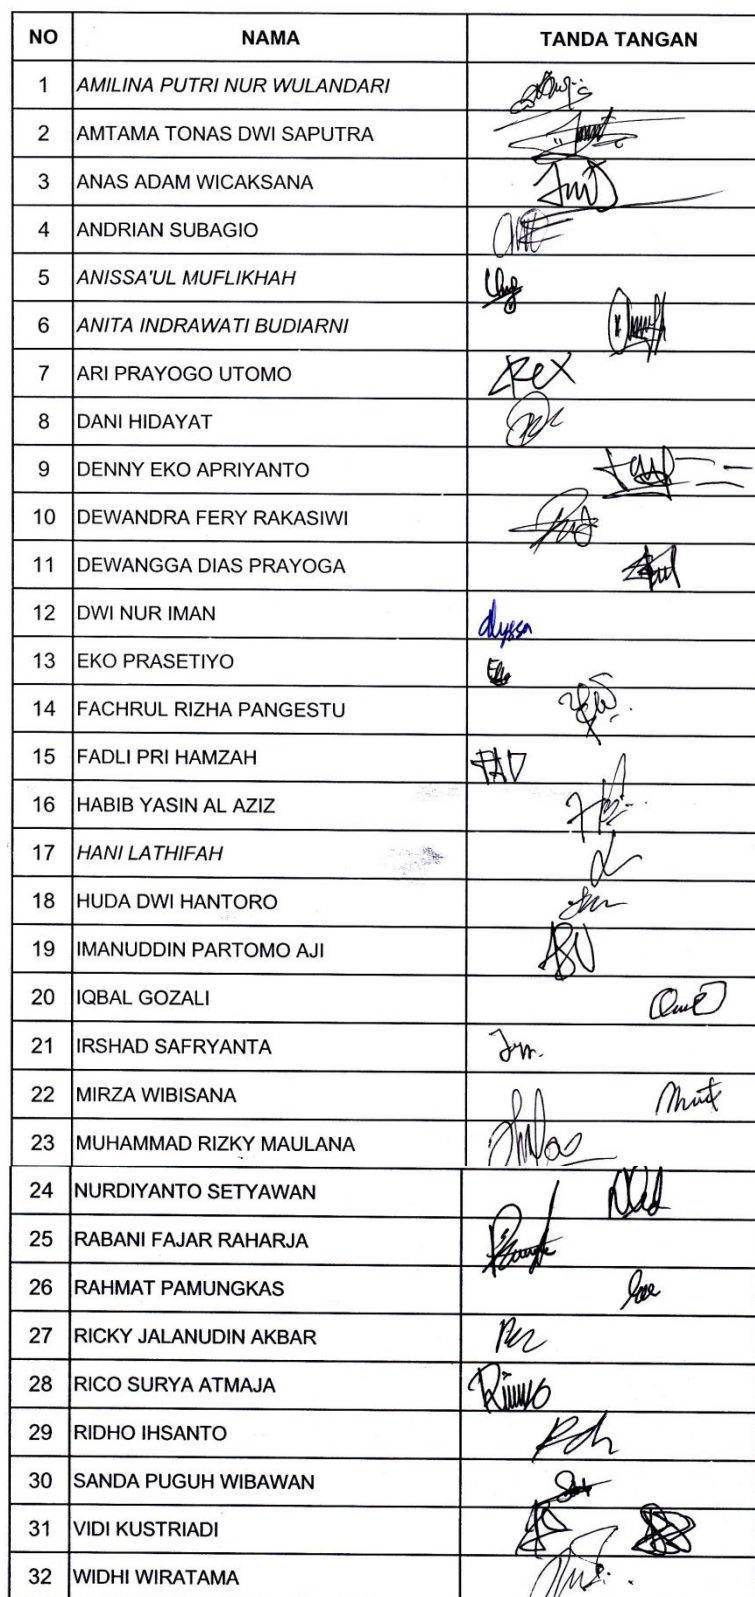 NO NAMA TANDA TANGAN
1 AMILINA PUTRI NUR WULANDARI
2 AMTAMA TONAS DWI SAPUTRA
3 ANAS ADAM WICAKSANA
4 ANDRIAN SUBAGIO
5 ANISSA'UL MUFLIKHAH
6 ANITA INDRAWATI BUDIARNI
7 ARI PRAYOGO UTOMO
8 DANI HIDAYAT
9 DENNY EKO APRIYANTO
10 DEWANDRA FERY RAKASIWI
11 DEWANGGA DIAS PRAYOGA
12 DWI NUR IMAN alyssa
13 EKO PRASETIYO
14 FACHRUL RIZHA PANGESTU
15 FADLI PRI HAMZAH
16 HABIB YASIN AL AZIZ
17 HANI LATHIFAH
18 HUDA DWI HANTORO
19 IMANUDDIN PARTOMO AJI
20 IQBAL GOZALI
21 IRSHAD SAFRYANTA
22 MIRZA WIBISANA
23 MUHAMMAD RIZKY MAULANA
24 NURDIYANTO SETYAWAN
25 RABANI FAJAR RAHARJA
26 RAHMAT PAMUNGKAS
27 RICKY JALANUDIN AKBAR
28 RICO SURYA ATMAJA
29 RIDHO IHSANTO
30 SANDA PUGUH WIBAWAN
31 VIDI KUSTRIADI
32 WIDHI WIRATAMA